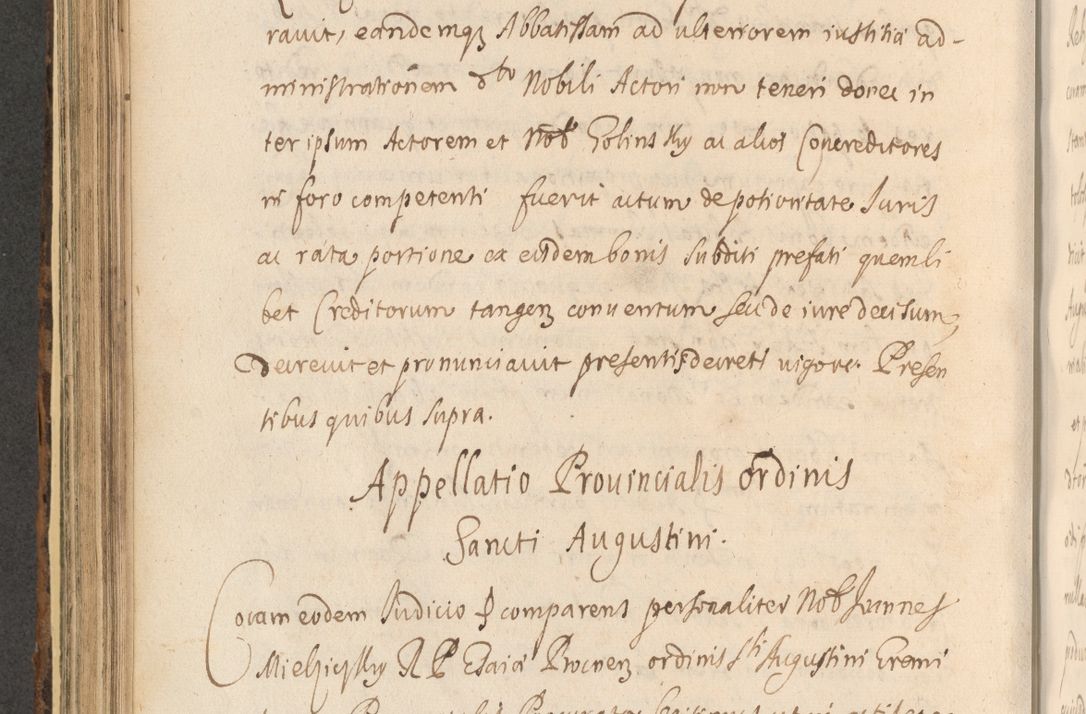 rauit, eandemqꝫ Abbatissam ad ulteriorem iustitiæ ad-
ministrationem dto Nobili Actori non teneri donec in
ter ipsum Actorem et Nob Golinsky ac alios Concreditores
in foro competenti fuerit actum de potioritate Iuris
ac rata portione ex eisdem bonis Subditi prefati quemli
bet Creditorum tangenꝫ conuentum seu de iure decisum,
decreuit et pronunciauit presentis decreti uigore. Presen
tibus quibus supra.
Appellatio Prouincialis ordinis
Sancti Augustini.
Coram eodem Iudicio comparens personaliter Nob Joannes
R P Esaiæ ordinis Sti Augustini Eremi